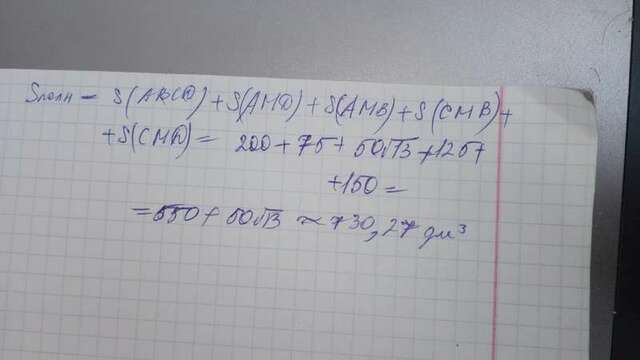 Sполн = S(ABCD) + S(AMD) + S(AMB) + S(CMB) +
+ S(CMD) = 200 + 75 + 50√13 + 125 +
+ 150 =
= 550 + 50√13 ≈ 730,27 дм³